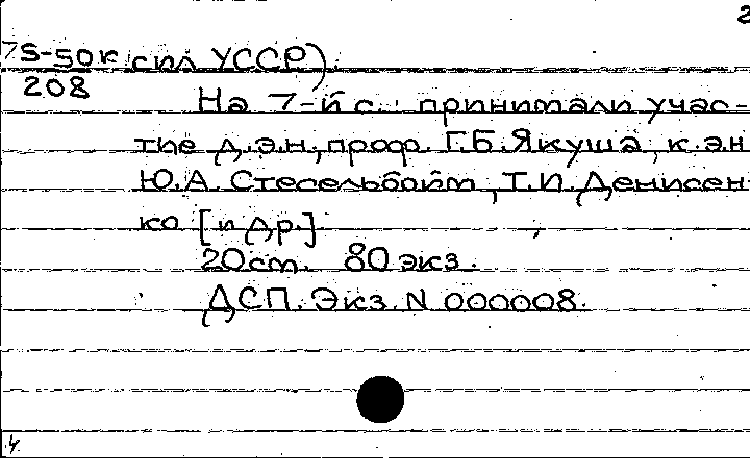 2
75-50к сил УССР).
208
На 7-й с.: принимали учас-
тие д.э.н., проф. Г.Б. Якуша, к.э.н
Ю.А. Стесельбойм, Т.П. Денисен
ко [и др.]
20 cm. 80 экз.
ДСП. Экз. N 000008.